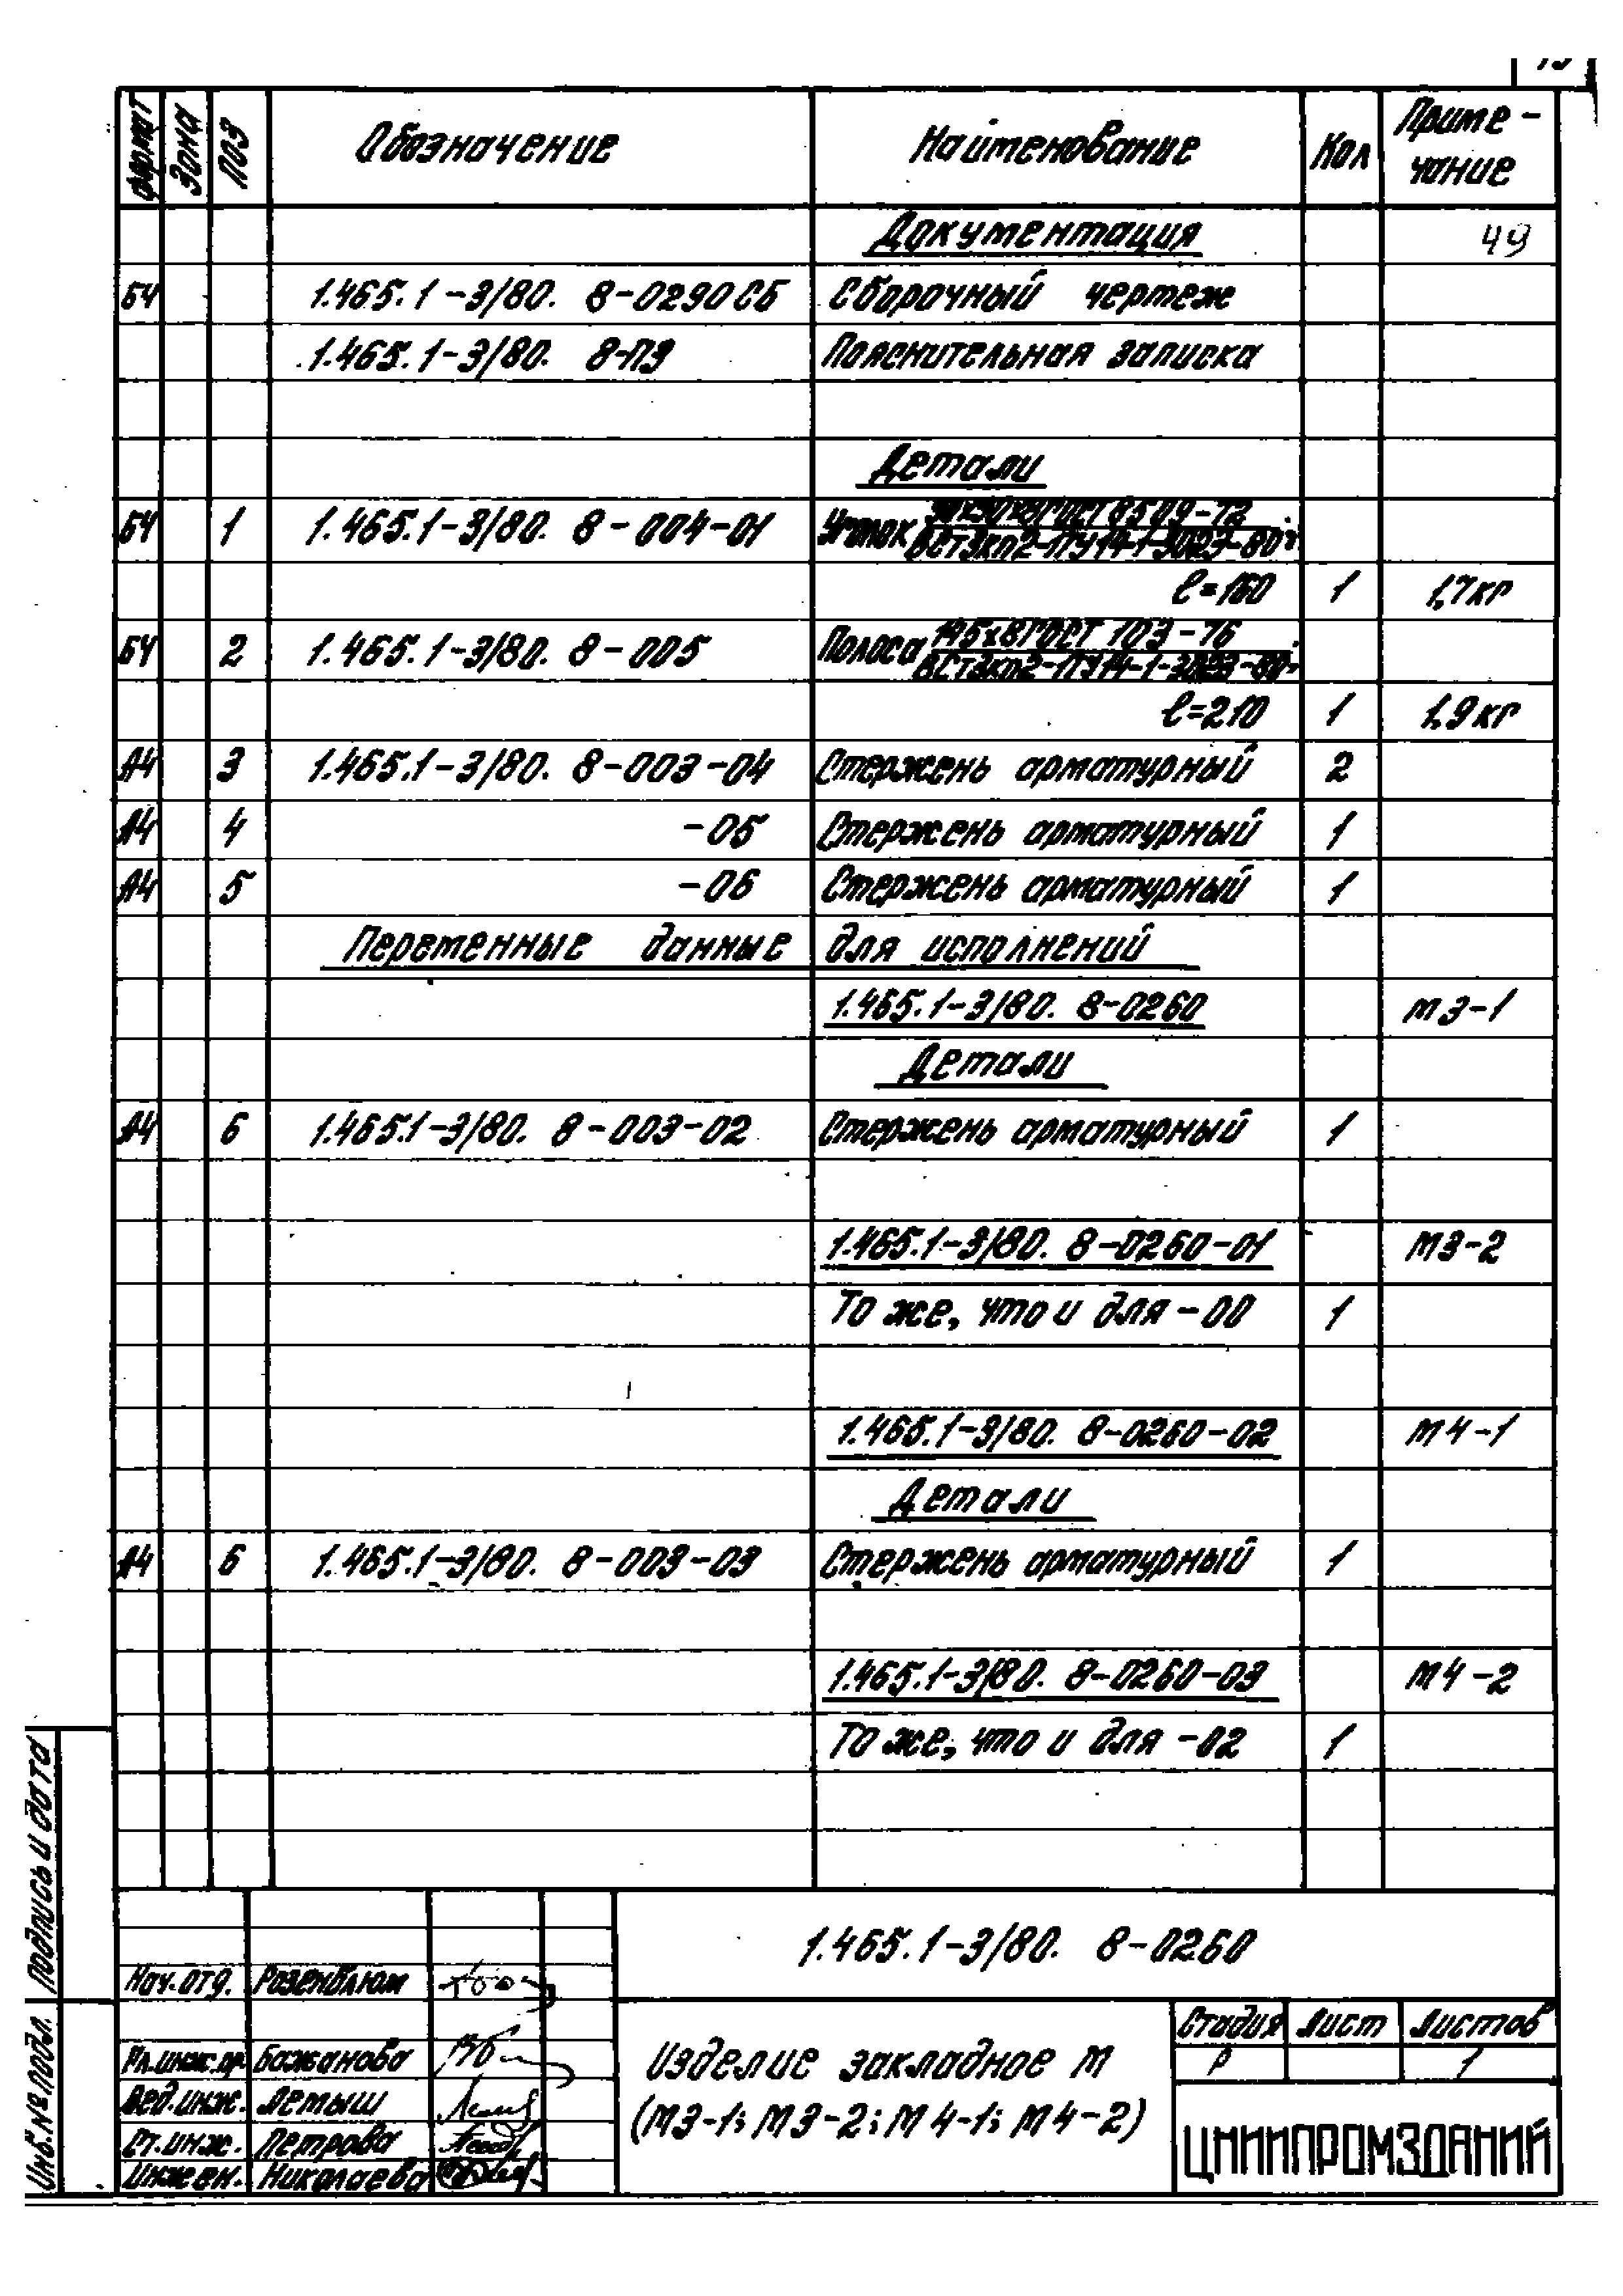 формат Зона Поз Обозначение Наименование Кол Приме-
чание
Документация 49
БЧ 1.465.1-3/80. 8-0290СБ Сборочный чертеж
1.465.1-3/80. 8-ПЗ Пояснительная записка
Детали
БЧ 1 1.465.1-3/80. 8-004-01 Уголок 90х90х8 ГОСТ 8509-72
ВСт3кп2-ТУ14-1-3023-80,
ℓ=160 1 1,7кг
БЧ 2 1.465.1-3/80. 8-005 Полоса 145х8 ГОСТ 103-76
ВСт3кп2-ТУ14-1-3023-80,
ℓ=210 1 1,9кг
А4 3 1.465.1-3/80. 8-003-04 Стержень арматурный 2
А4 4 -05 Стержень арматурный 1
А4 5 -06 Стержень арматурный 1
Переменные данные для исполнений
1.465.1-3/80. 8-0260 М3-1
Детали
А4 6 1.465.1-3/80. 8-003-02 Стержень арматурный 1
1.465.1-3/80. 8-0260-01 М3-2
То же, что и для -00 1
1.465.1-3/80. 8-0260-02 М4-1
Детали
А4 6 1.465.1-3/80. 8-003-03 Стержень арматурный 1
1.465.1-3/80. 8-0260-03 М4-2
То же, что и для -02 1
Подпись и дата
Инв.№ подл.
1.465.1-3/80. 8-0260
Нач.отд. Розенблюм
Гл.инж.пр. Бажанова
Вед.инж. Летыш
Ст.инж. Петрова
Инжен. Николаева
Изделие закладное М
(М3-1; М3-2; М4-1; М4-2)
Стадия Лист Листов
Р 1
ЦНИИПРОМЗДАНИЙ